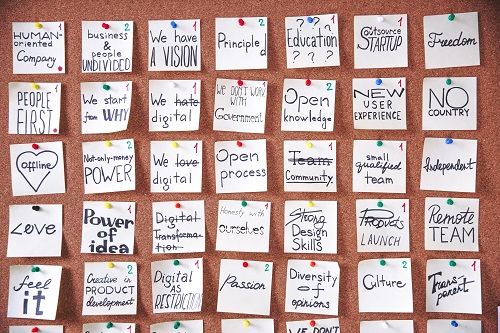 HUMAN-
oriented
Company.
2
business
&
people
UNDIVIDED
1
We have
A VISION
2
Principled
1
? ? ?
Education
? ? ? ?
1
Outsource
STARTUP
Freedom
1
PEOPLE
FIRST
We start
from WHY
1
We hate
digital
1
WE DON'T WORK
WITH
Government
2
Open
knowledge
1
NEW
USER
EXPERIENCE
NO
COUNTRY
offline
2
Not-only-money
POWER
1
We love
digital
1
Open
process
Team
Community
1
small
qualified
team
Independent
Love
1
Power of
idea
Digital
Transforma-
tion
1
Honesty with
ourselves
Strong
Design
Skills
1
Products
LAUNCH
Remote
TEAM
2
feel
it
2
Creative in
PRODUCT
development
1
Digital
AS
RESTRICTION
2
Passion
1
Diversity
of
opinions
2
Culture
2
Trans-
parent
WE DON'T